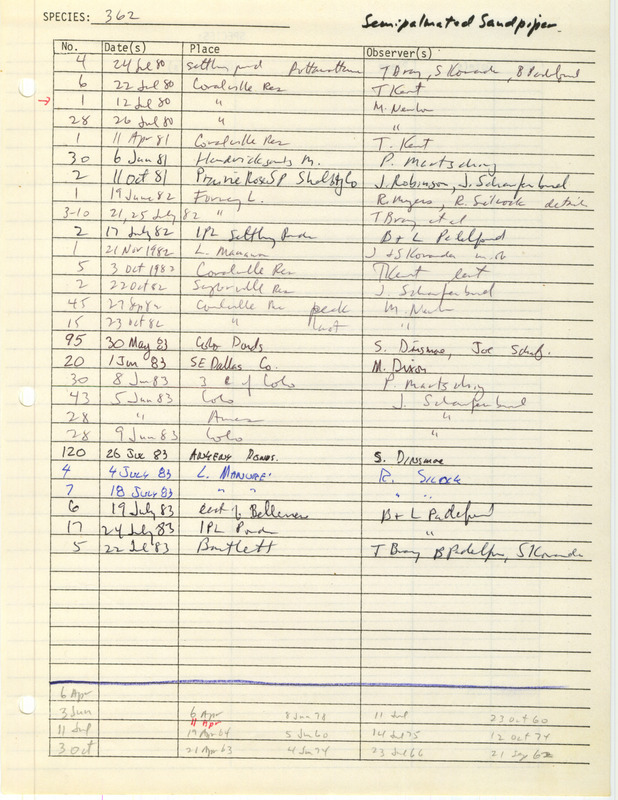 SPECIES: 362 Semipalmated Sandpiper
No. Date(s) Place Observer(s)
4 24 Jul 80 settling pond Pottawattamie T Bray, S Kovanda, B Padelford
6 22 Jul 80 Coralville Res T Kent
→ 1 12 Jul 80 " M. Newlon
28 26 Jul 80 " "
1 11 Apr 81 Coralville Res T. Kent
30 6 Jun 81 Hendrickson M. P. Martsching
2 11 Oct 81 Prairie Rose SP Shelby Co J. Robinson, J. Schaufenbuel
1 19 June 82 Forney L. R. Myers, R. Silcock details
3-10 21, 25 July 82 " T Bray et al
2 17 July 82 IPL Settling Ponds B + L Padelford
1 21 Nov 1982 L. Manawa J + S Kovanda
5 3 Oct 1982 Coralville Res T Kent last
2 22 Oct 82 Saylorville Res J. Schaufenbuel
45 27 Sep 82 Coralville Res peak M. Newlon
15 23 Oct 82 " last "
95 30 May 83 Colo Ponds S. Dinsmore, Joe Schauf.
20 1 Jun 83 SE Dallas Co. M. Dixon
30 8 Jun 83 3 E of Colo P. Martsching
43 5 Jun 83 Colo J. Schaufenbuel
28 " Ames "
28 9 Jun 83 Colo "
120 26 Jul 83 Ankeny Ponds. S. Dinsmore
4 4 July 83 L. Manawa R. Silcock
7 18 July 83 " " " "
6 19 July 83 east of Bellevue B + L Padelford
17 24 July 83 IPL Ponds "
5 22 Jul 83 Bartlett T Bray, B Padelford, S Kovanda
6 Apr
3 Jun 6 Apr 8 Jun 78 11 Jul 23 Oct 60
11 Apr
11 Jul 19 Apr 64 5 Jun 60 14 Jul 75 12 Oct 74
3 Oct 21 Apr 63 4 Jun 74 23 Jul 66 21 Sep 62